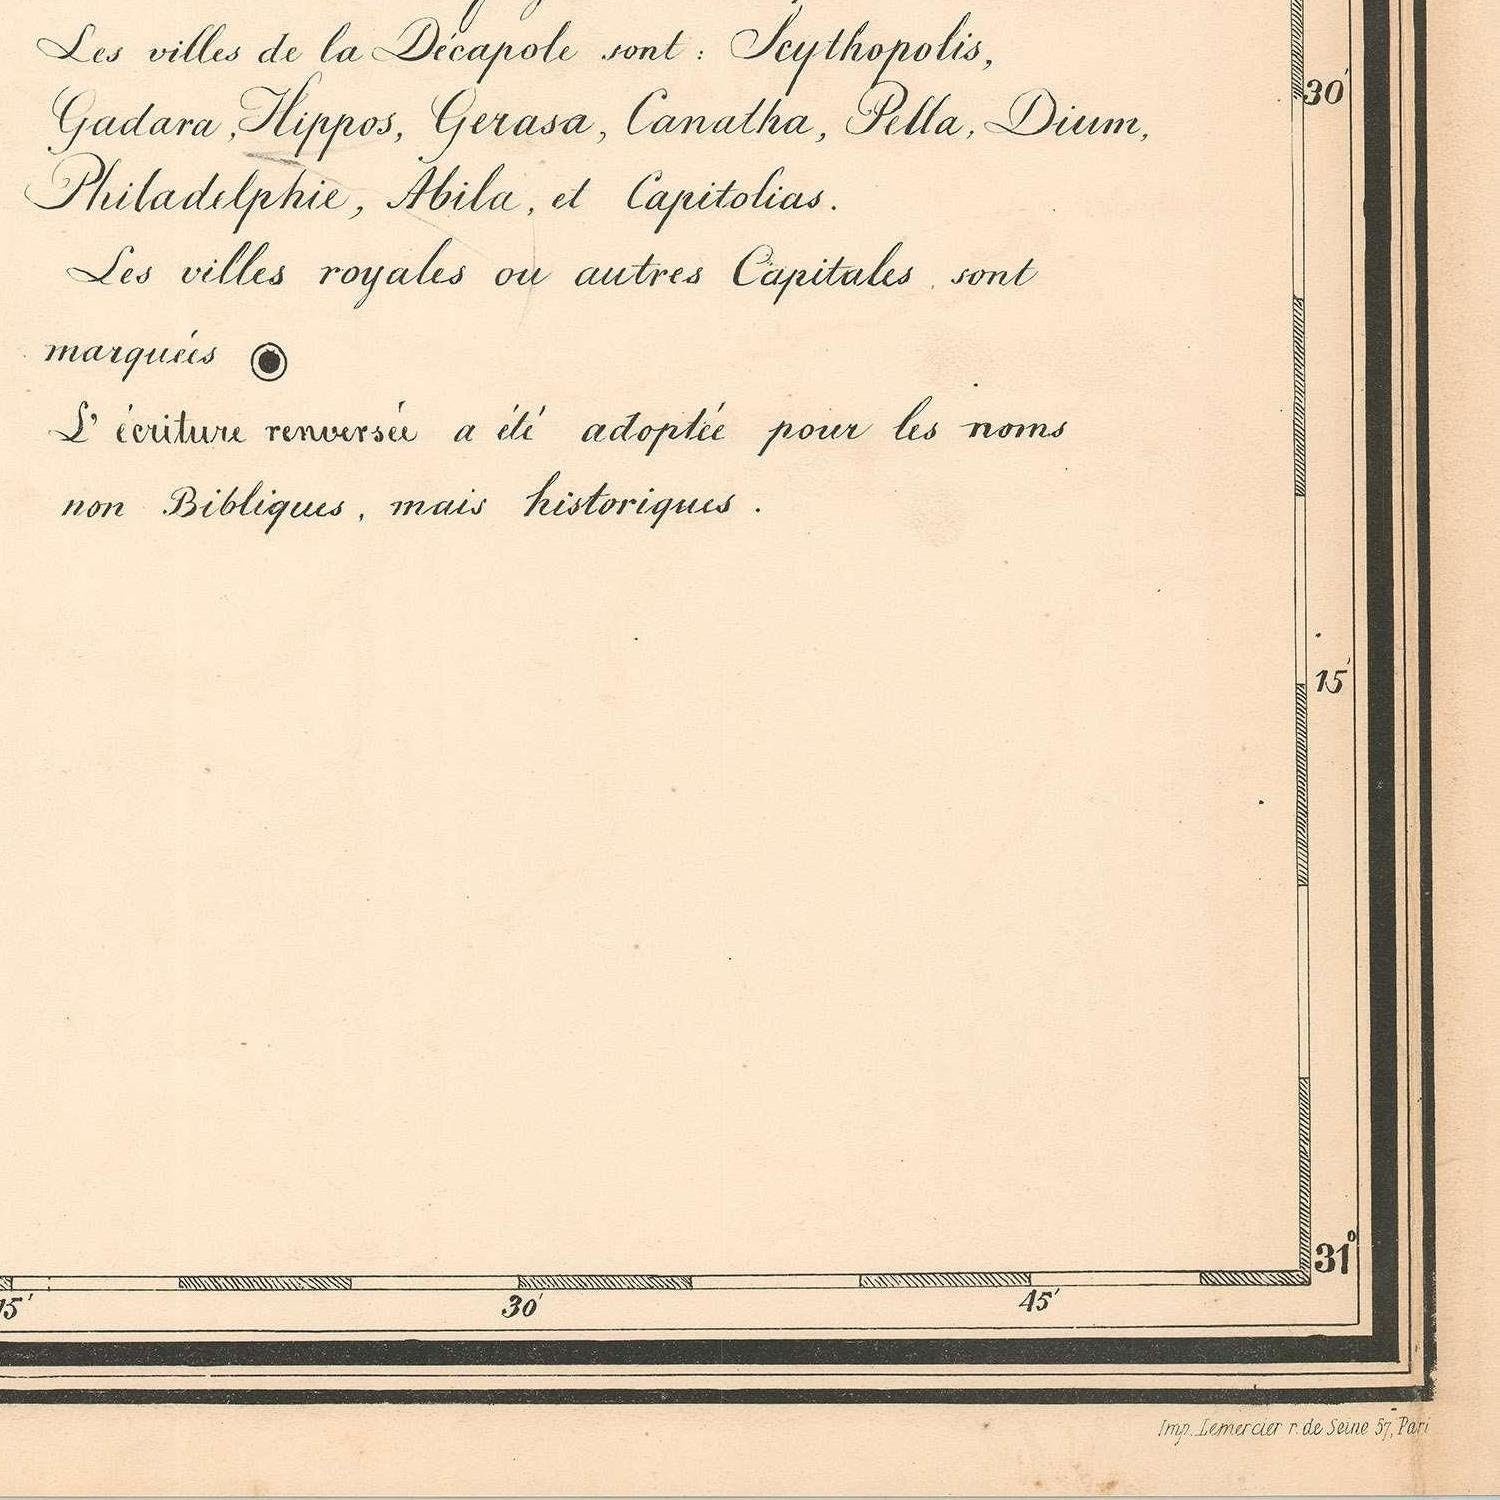 Les villes de la Décapole sont : Scythopolis,
Gadara, Hippos, Gerasa, Canatha, Pella, Dium,
Philadelphie, Abila, et Capitolias.
Les villes royales ou autres Capitales sont
marquées
L'écriture renversée a été adoptée pour les noms
non Bibliques, mais historiques.
30'
15'
31°
15'
30'
45'
Imp. Lemercier r. de Seine 57, Pari